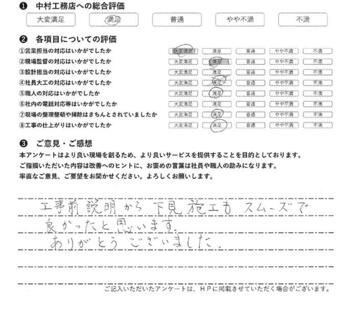 ❶ 中村工務店への総合評価
大変満足 満足 普通 やや不満 不満
❷ 各項目についての評価
①営業担当の対応はいかがでしたか 大変満足 満足 普通 やや不満 不満
②現場監督の対応はいかがでしたか 大変満足 満足 普通 やや不満 不満
③設計担当の対応はいかがでしたか 大変満足 満足 普通 やや不満 不満
④社員大工の対応はいかがでしたか 大変満足 満足 普通 やや不満 不満
⑤職人の対応はいかがでしたか 大変満足 満足 普通 やや不満 不満
⑥社内の電話対応等はいかがでしたか 大変満足 満足 普通 やや不満 不満
⑦現場の整理整頓や掃除はきちんとされていましたか 大変満足 満足 普通 やや不満 不満
⑧工事の仕上がりはいかがでしたか 大変満足 満足 普通 やや不満 不満
❸ ご意見・ご感想
本アンケートはより良い現場を創るため、より良いサービスを提供することを目的としております。
ご指摘いただいた内容は改善へのヒントに、お褒めの言葉は社員や職人の励みになります。
率直なご意見、ご要望をお聞かせください。よろしくお願いします。
工事前説明から下見施工もスムーズで
良かったと思います。
ありがとうございました。
ご記入いただいたアンケートは、HPに掲載させていただく場合がございます。